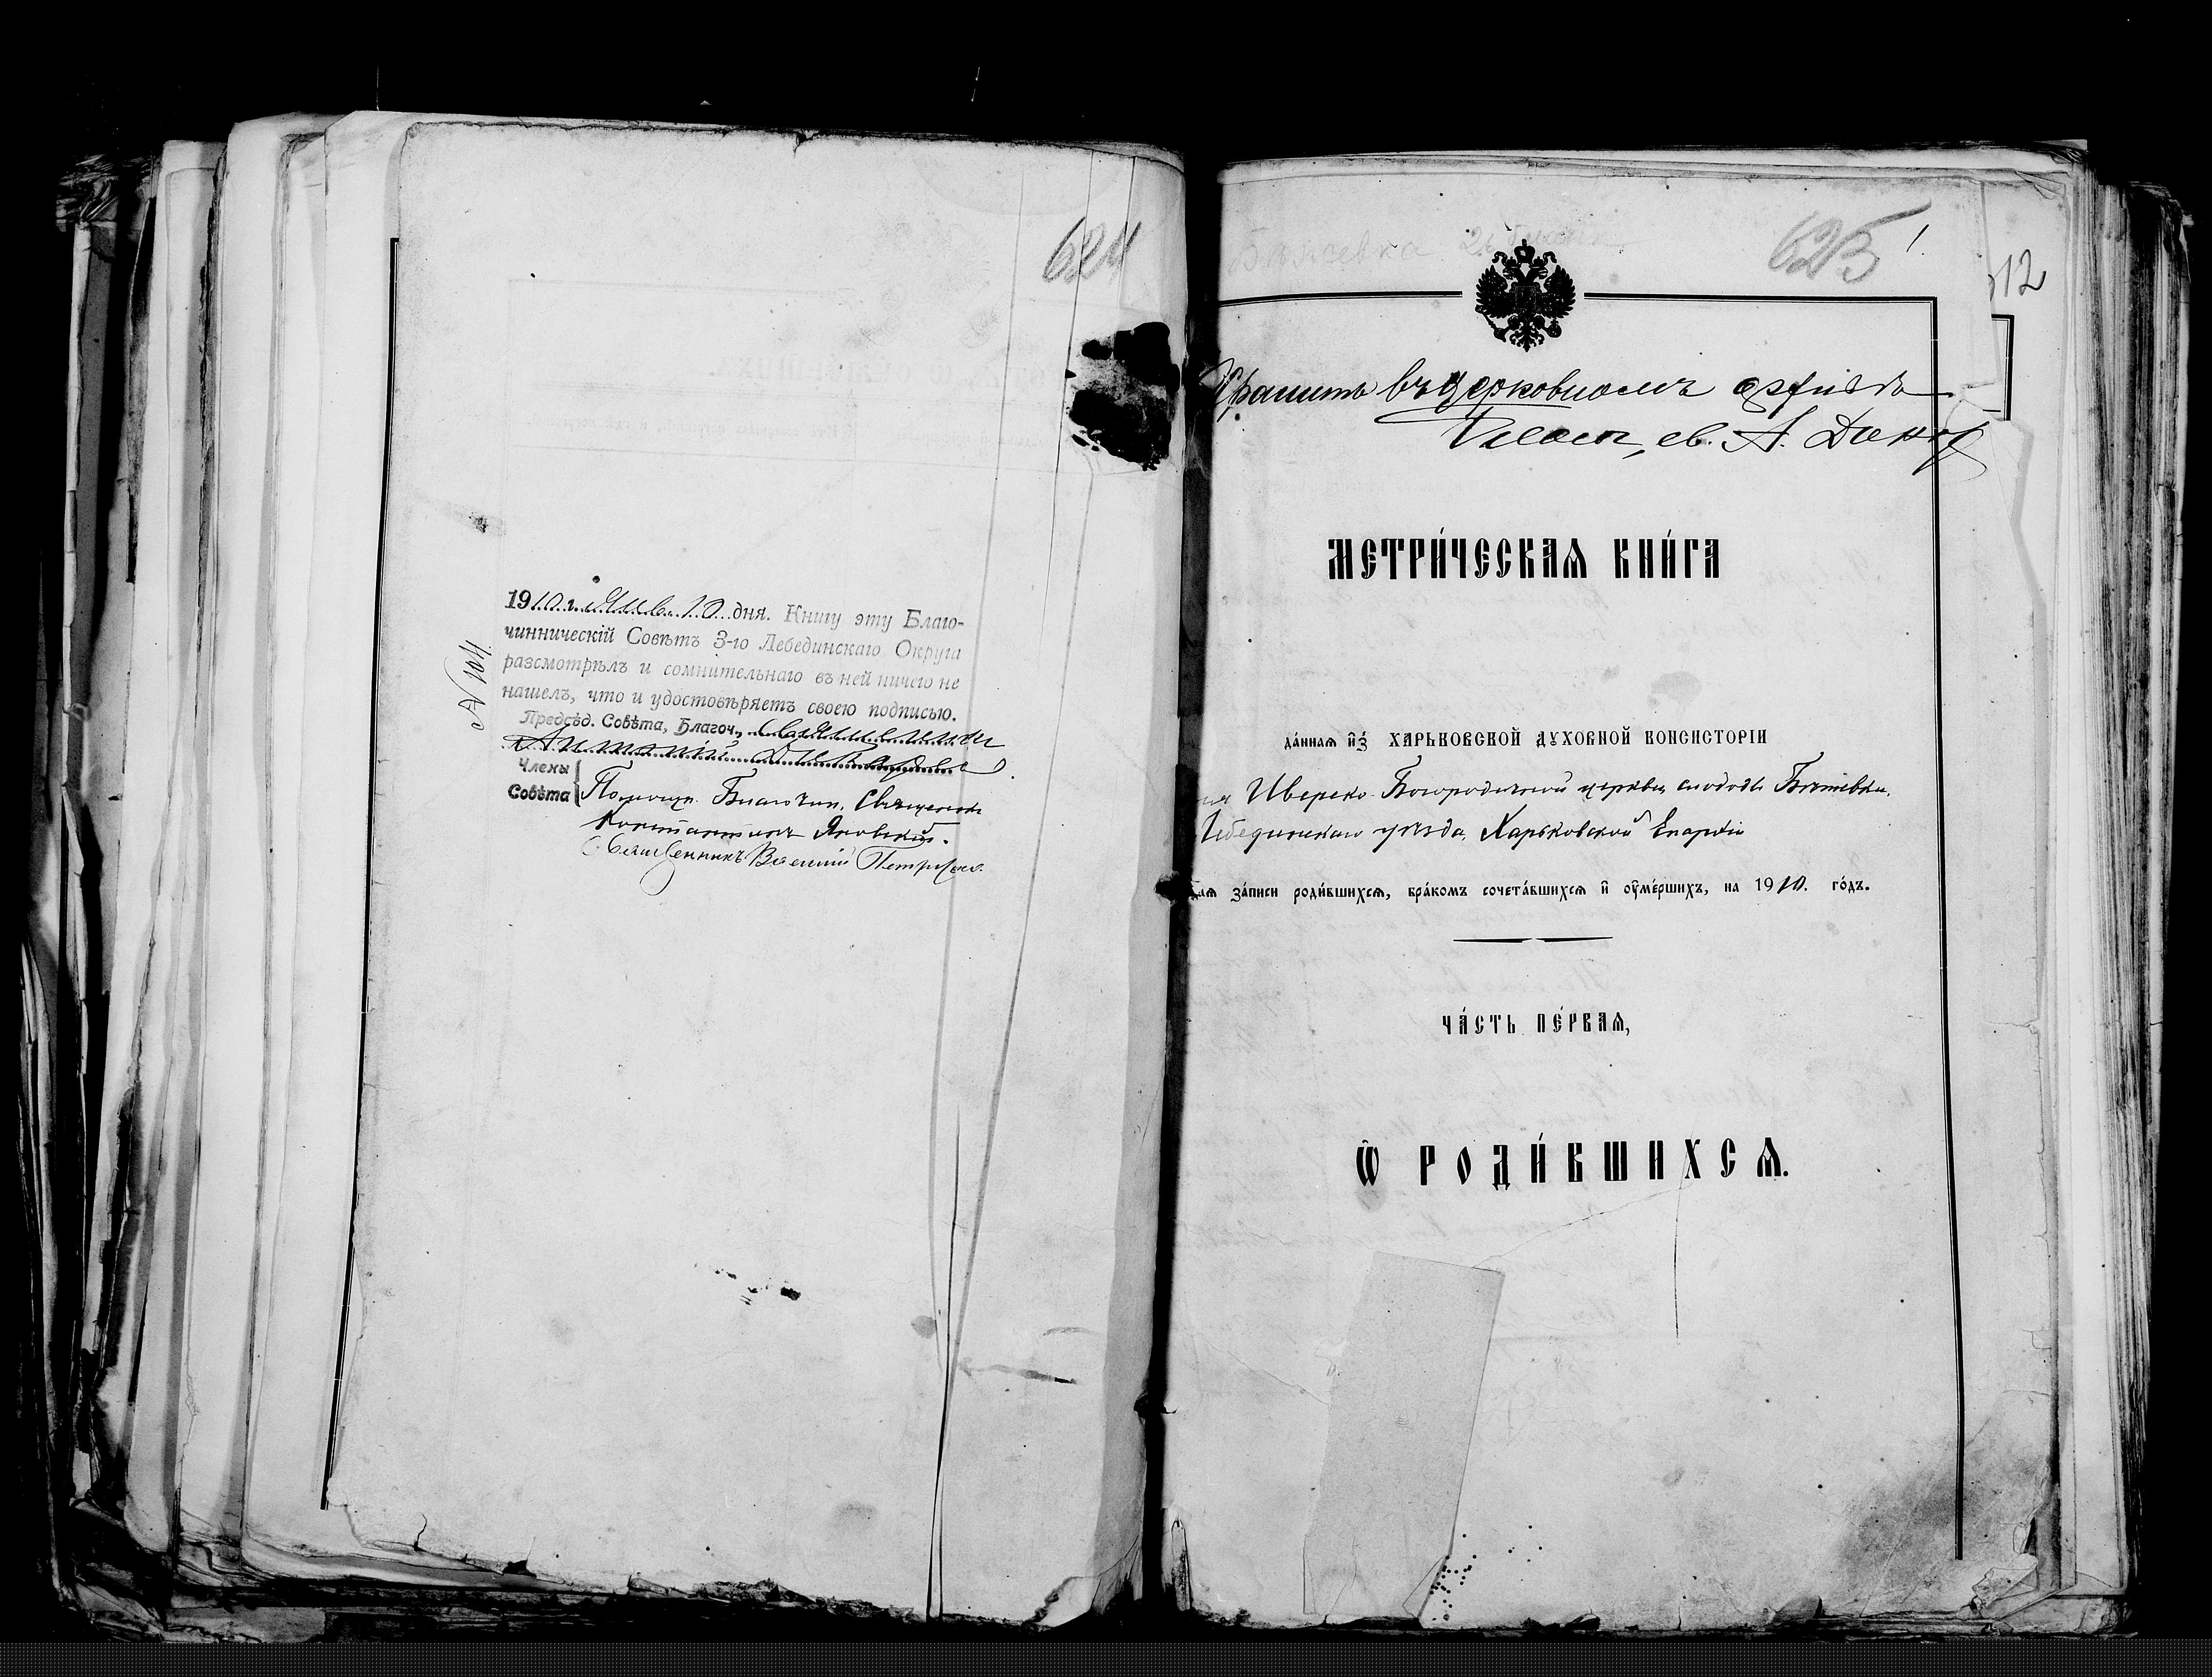 624
1910 г. Янв. 10 дня. Книгу эту Благо-
чинническій Совѣтъ 3-го Лебединскаго Округа
разсмотрѣлъ и сомнительнаго въ ней ничего не
нашелъ, что и удостовѣряетъ своею подписью.
Предсѣд. Совѣта, Благоч., Священникъ
Антоній
Члены
Совѣта
Помощн. Благочин. Священникъ
Константинъ Яновскій.
Священникъ Василій
625
1.
12
Хранить въ церковномъ архивѣ
св. А.
МЕТРИ́ЧЕСКАѦ КНИ́ГА
да́ннаѧ и҆з̾ ХАРЬКОВСКОЙ ДꙊХОВНОЙ КОНСИСТОРІИ
Иверско-Богородичной церкви слободы Бишевки,
Лебединскаго уѣзда, Харьковской Епархіи
для за́писи роди́вшихсѧ, бра́комъ сочета́вшихсѧ и҆ оу҆ме́ршихъ, на 1910. го́дъ.
ЧА́СТЬ ПЕ́РВАѦ,
Ѡ҆ РОДИ́ВШИХСѦ.